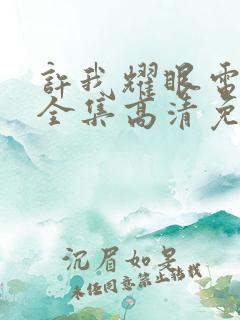 許我耀眼電
全集高清免
沉眉如是
未经同意禁止转载